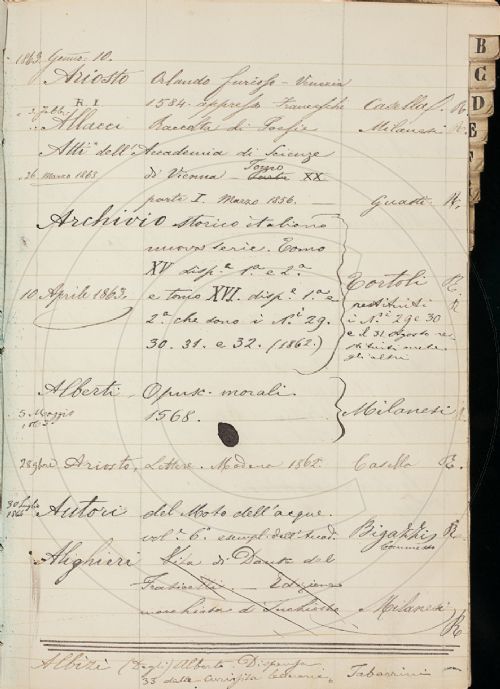 1863. Genno. 10.
Ariosto Orlando furioso - Venezia
2. Febb. R. I. 1584. appresso Franceschi Casella f. R.
Allacci Raccolta di Poesie Milanesi R.
Atti dell'Accademia di Scienze
26 Marzo 1863 di Vienna - Tomo XX
parte I. Marzo 1856. Guasti R.
Archivio storico italiano
nuova serie. Tomo
XV disp.a 1.a e 2.a
10 Aprile 1863. e tomo XVI. disp.e 1.a e Tortoli R.
2.a che sono i N.i 29. restituiti R
30. 31. e 32. (1862.) i N.i 29 e 30
e il 31 Agosto re-
stituiti anche
gli altri
Alberti, Opusc. morali.
5. Maggio 1568. Milanesi
28 9bre Ariosto, Lettere. Modena 1862. Casella R.
30 luglio
1864 Autori del Moto dell'acque.
vol. 6.o Bigazzi R.
Alighieri Vita di Dante del
Fraticelli Edizione
macchiata d'Inchiostro Milanesi
R
Albizi (Degli) Alberto. Dispensa
33 delle Curiosità letterarie, Tabarrini
B
C
D
E
F